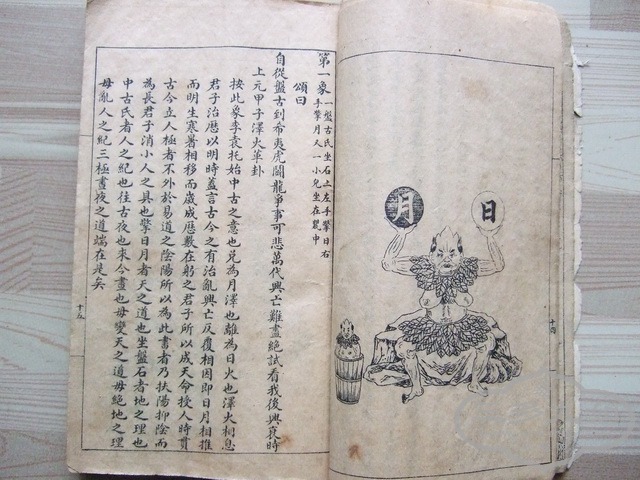 日
月
十四
第一象
一盤古氏坐石上左手擎日右
手擎月又一小兒坐在甕中
頌曰
自從盤古到希夷虎鬪龍爭事可悲萬代興亡難盡絕試看我後興衰時
上元甲子澤火革卦
按此象李袁托始中古之意也兌為月澤也離為日火也澤火相息
君子治歷以明時蓋言古今之有治亂興亡反覆相因即日月相推
而明生寒暑相移而歲成歷數在躬之君子所以成天命授人時貫
古今立人極者不外於易道之陰陽所以為此書者乃扶陽抑陰而
為長君子消小人之具也擎日月者天之道也坐盤石者地之理也
中古氏者人之紀也往古夜也來今晝也毋變天之道毋絕地之理
毋亂人之紀三極晝夜之道端在是矣
十五